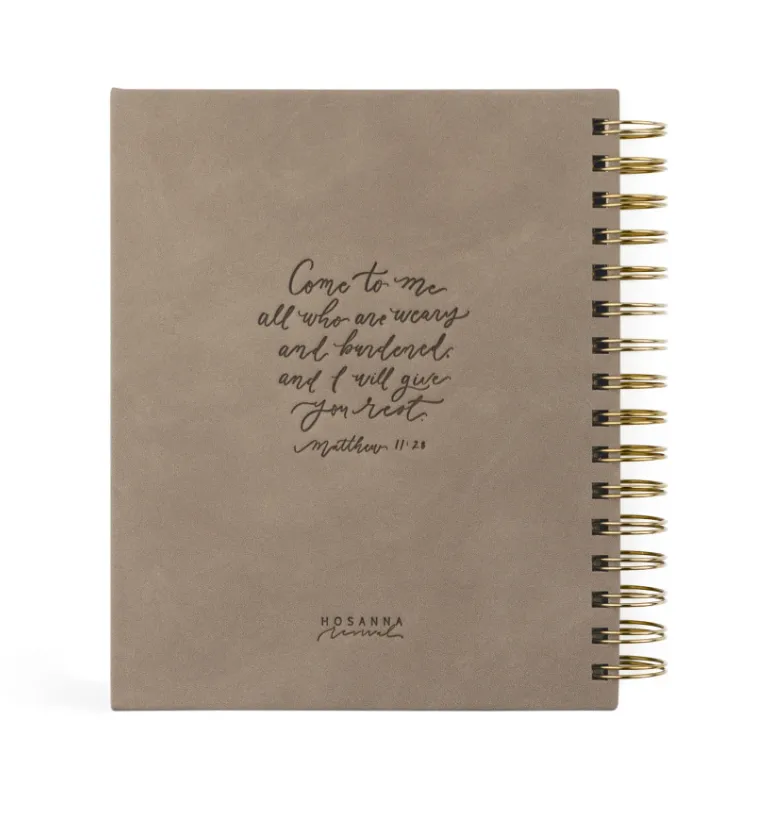 Come to me
all who are weary
and burdened,
and I will give
you rest.
Matthew 11:28
HOSANNA
revival